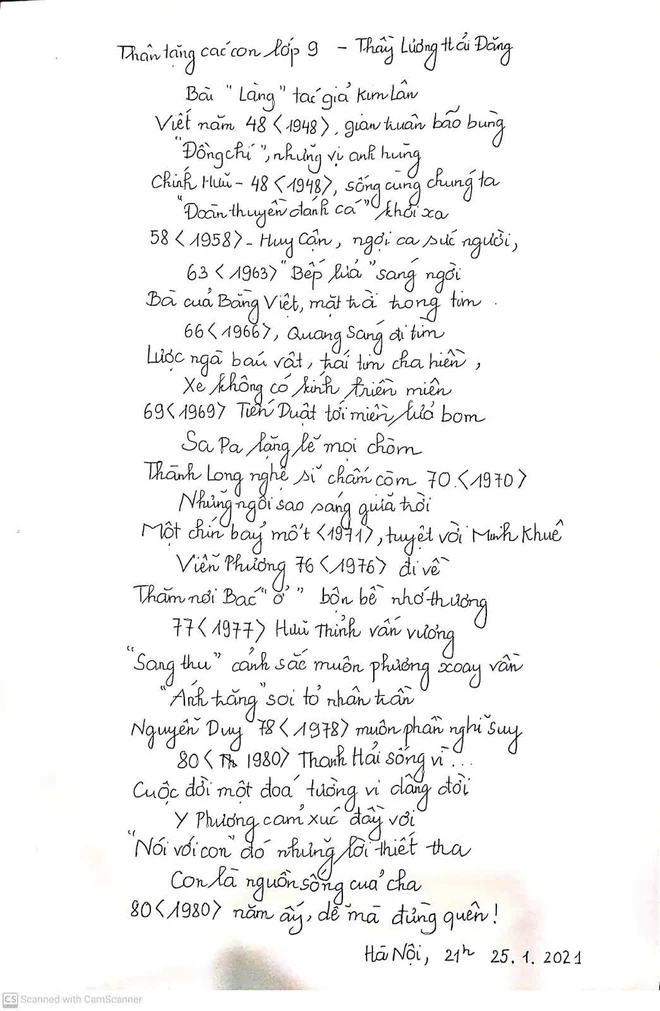 Thân tặng các con lớp 9 - Thầy Lương Hải Đăng
Bài "Làng" tác giả Kim Lân
Viết năm 48 <1948>, gian truân bão bùng
"Đồng chí", những vị anh hùng
Chính Hữu - 48 <1948>, sống cùng chúng ta
"Đoàn thuyền đánh cá" khơi xa
58 <1958> - Huy Cận, ngợi ca sức người,
63 <1963> "Bếp lửa" sáng ngời
Bà của Bằng Việt, mặt trời trong tim.
66 <1966>, Quang Sáng đi tìm
Lược ngà báu vật, trái tim cha hiền,
Xe không có kính triền miên
69 <1969> Tiến Duật tới miền lửa bom
Sa Pa lặng lẽ mọi chòm
Thành Long nghệ sĩ chấm còm 70. <1970>
Những ngôi sao sáng giữa trời
Một chín bảy mốt <1971>, tuyệt vời Minh Khuê
Viễn Phương 76 <1976> đi về
Thăm nơi Bác "ở" bộn bề nhớ thương
77 <1977> Hữu Thỉnh vấn vương
"Sang thu" cảnh sắc muôn phương xoay vần
"Ánh trăng" soi tỏ nhân trần
Nguyễn Duy 78 <1978> muôn phần nghĩ suy
80 <1980> Thanh Hải sống vì...
Cuộc đời một đoá tường vi dâng đời
Y Phương cảm xúc đầy vơi
"Nói với con" đó những lời thiết tha
Con là nguồn sống của cha
80 <1980> năm ấy, dễ mà đừng quên!
Hà Nội, 21h 25.1.2021
CS Scanned with CamScanner